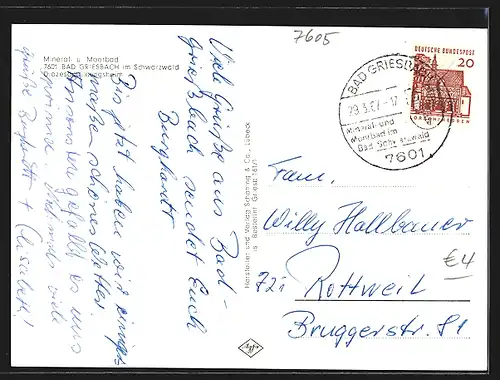 7605
Mineral u. Moorbad
7601 BAD GRIESBACH im Schwarzwald
Diözesan
Viele Grüße aus Bad-
griesbach sendet Euch
Burghardt
Bis jetzt haben wir einiger
maßen schönes Wetter.
Ansonsten gefällt es uns
prima. Nochmals viele
Grüße Burghardt +
Hersteller und Verlag Schöning & Co., Lübeck
Bestellnr. Griesb 161/1
Agfa
DEUTSCHE BUNDESPOST
20
BAD GRIESBACH
Mineral- und
Moorbad im
Bad Schwarzwald
7601
Fam.
Willy Hallbauer
721 Rottweil
Bruggerstr. 81
€4